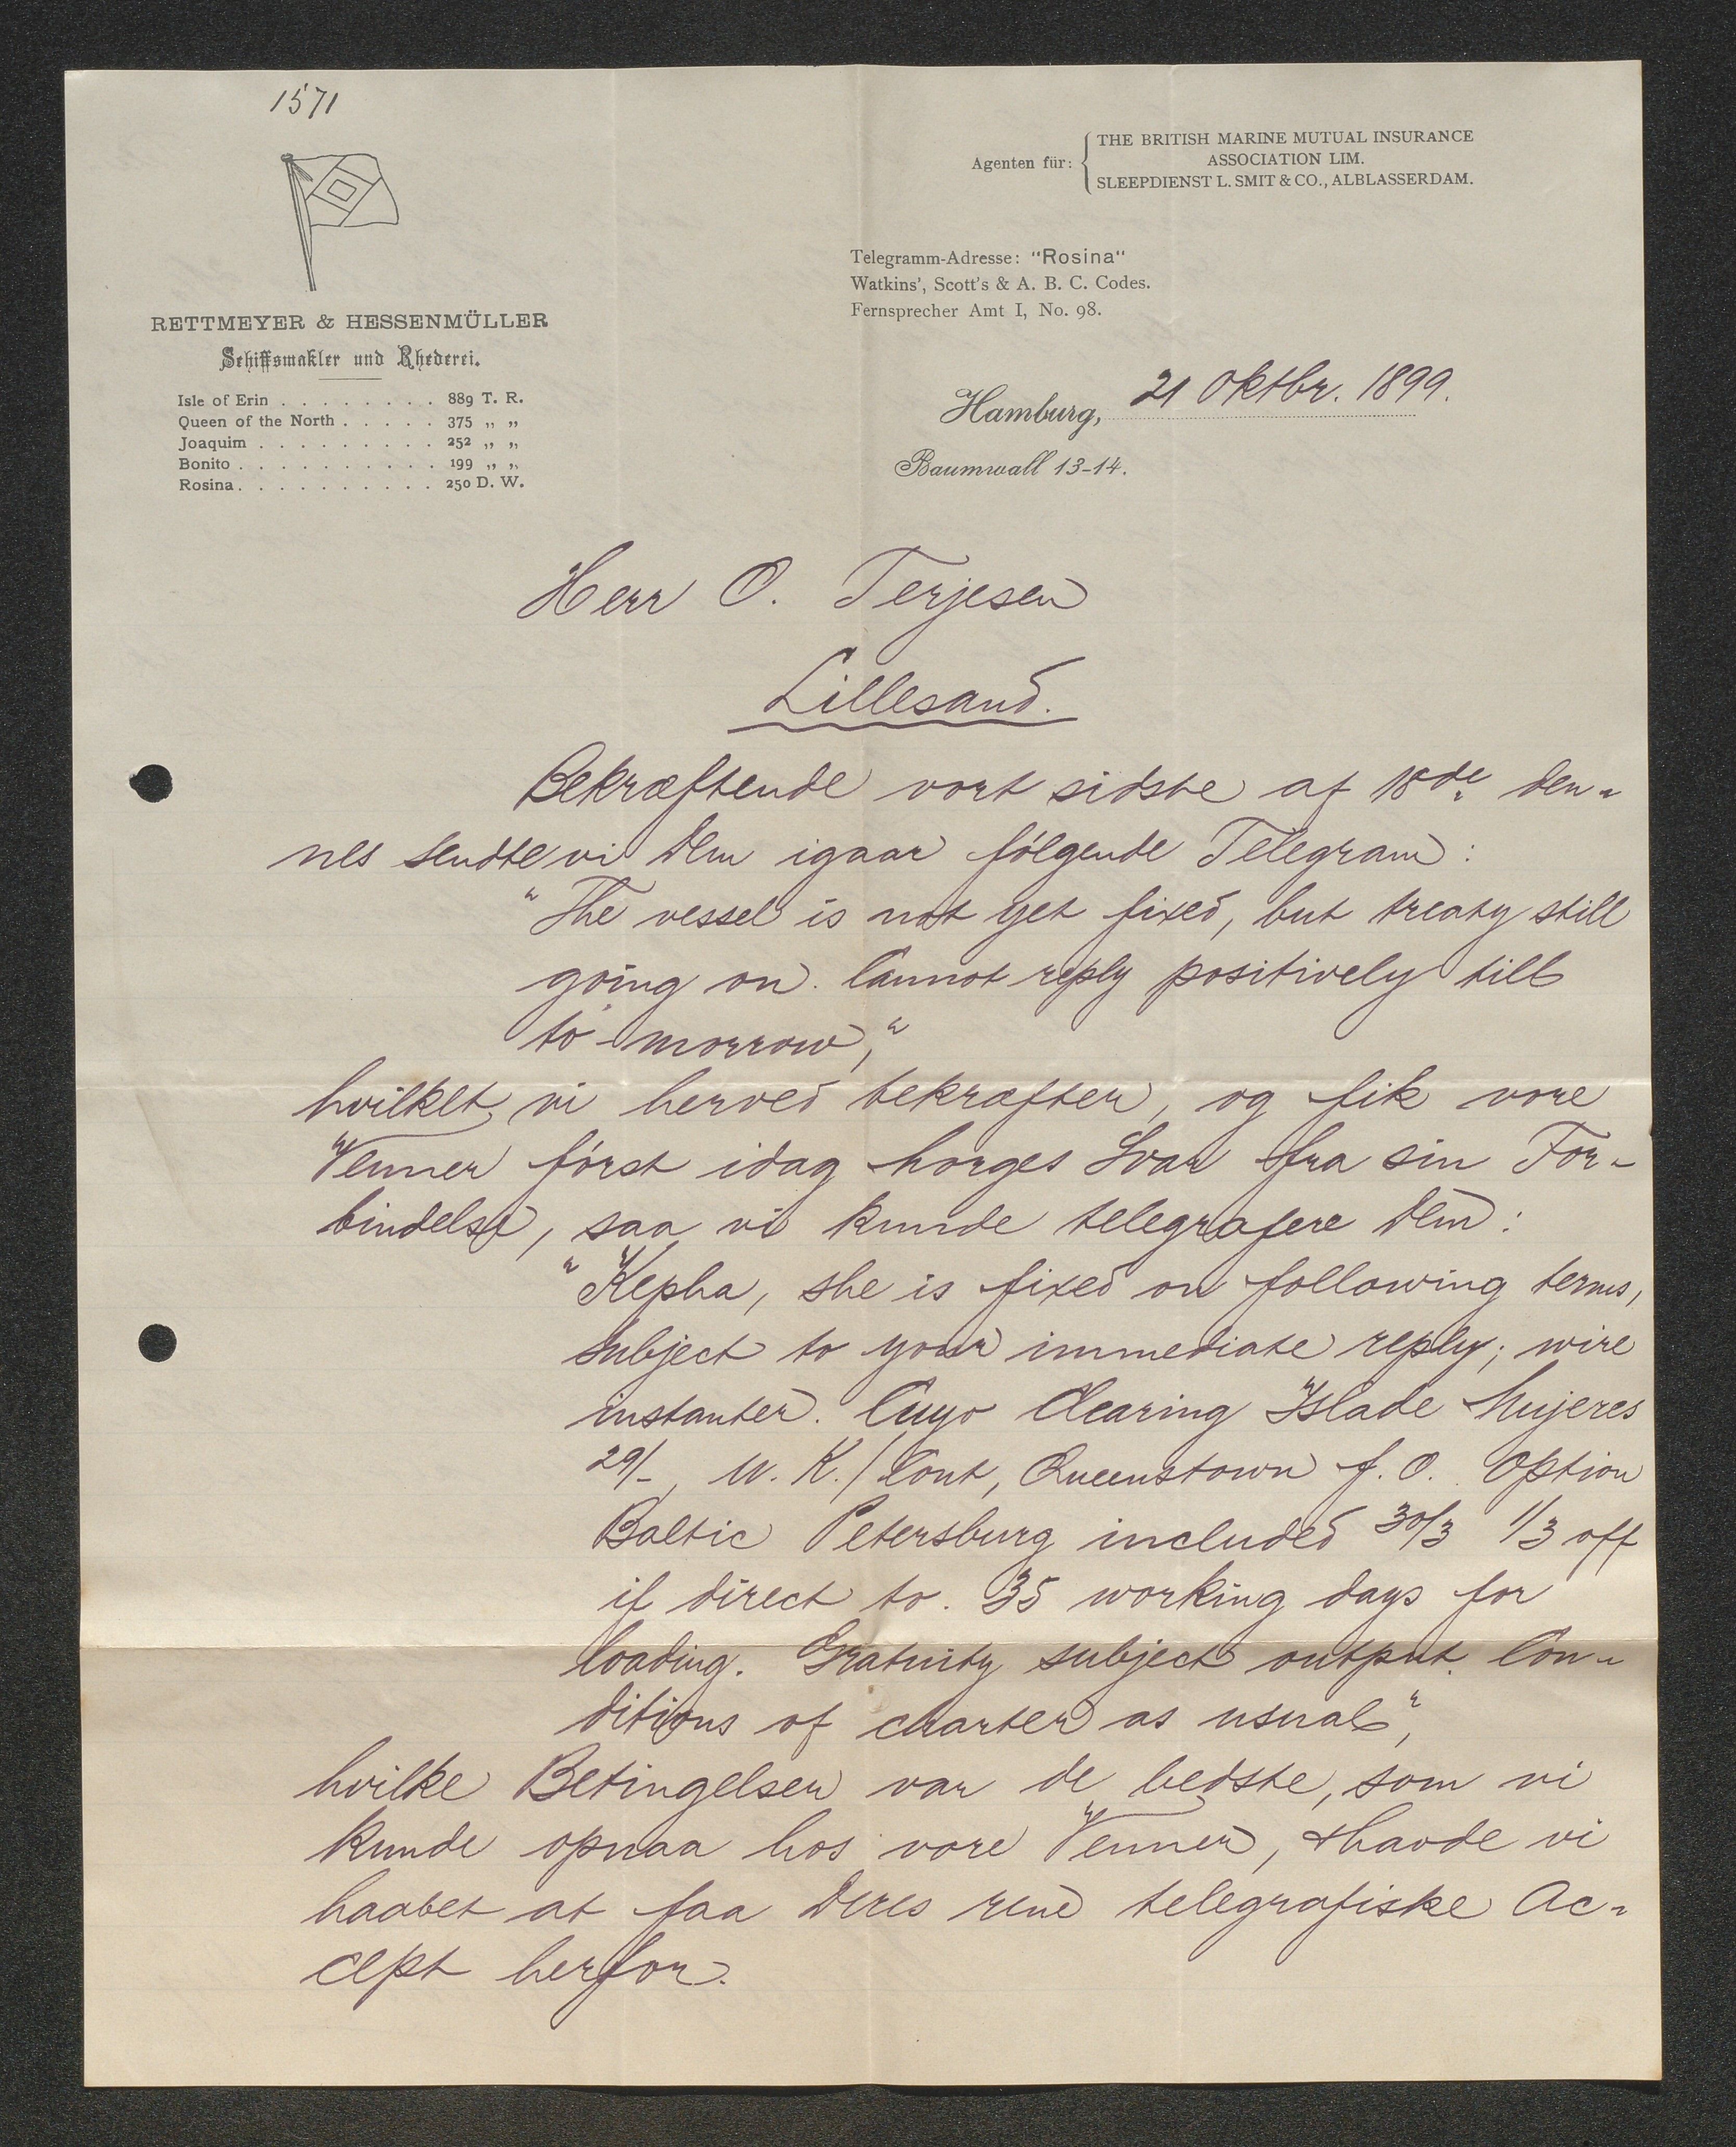 1571
Agenten für: THE BRITISH MARINE MUTUAL INSURANCE
ASSOCIATION LIM.
SLEEPDIENST L. SMIT & CO., ALBLASSERDAM.
Telegramm-Adresse: "Rosina"
Watkins', Scott's & A. B. C. Codes.
Fernsprecher Amt I, No. 98.
RETTMEYER & HESSENMÜLLER
Schiffsmakler und Rhederei.
Isle of Erin . . . . . . . . 889 T. R.
Queen of the North . . . . . 375 " "
Joaquim . . . . . . . . . 252 " "
Bonito . . . . . . . . . . 199 " "
Rosina . . . . . . . . . . 250 D. W.
Hamburg, 21 Oktbr. 1899.
Baumwall 13-14.
Herr O. Terjesen
Lillesand.
Bekræftende vort sidste af 18de den-
nes sendte vi Dem igaar følgende Telegram:
"The vessel is not yet fixed, but treaty still
going on. Cannot reply positively till
to-morrow,"
hvilket vi herved bekræfter, og fik vore
Venner først idag morges Svar fra sin For-
bindelse, saa vi kunde telegrafere Dem:
"Kepha, she is fixed on following terms,
subject to your immediate reply; wire
instanter. Cuyo Clearing Islade Mujeres
29/-, U. K./Cont, Queenstown f. O. Option
Baltic Petersburg included 30/3 1/3 off
if direct to. 35 working days for
loading. Gratuity subject output. Con-
ditions of charter as usual",
hvilke Betingelser var de bedste, som vi
kunde opnaa hos vore Venner, & havde vi
haabet at faa Deres rene telegrafiske Ac-
cept herfor.